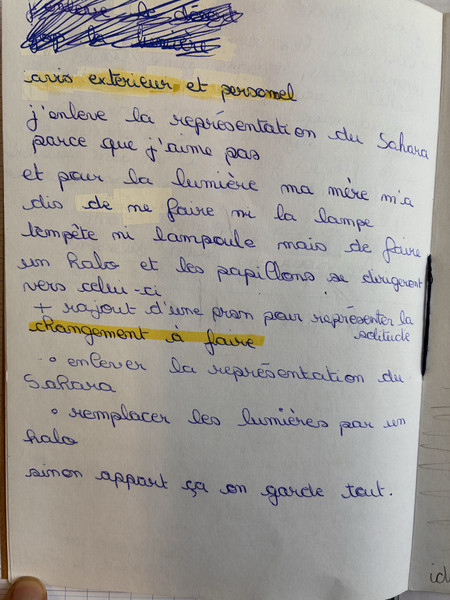 j'enlève le désert
pop la lumière
avis extérieur et personnel
j'enleve la représentation du Sahara
parce que j'aime pas
et pour la lumière ma mère m'a
dis de ne faire ni la lampe
tempête ni lampoule mais de faire
un halo et les papillons se dirigeront
vers celui-ci
+ rajout d'une prsn pour représenter la
solitude
changement à faire
° enlever la représentation du
Sahara
° remplacer les lumières par un
halo
sinon appart ça on garde tout.
id